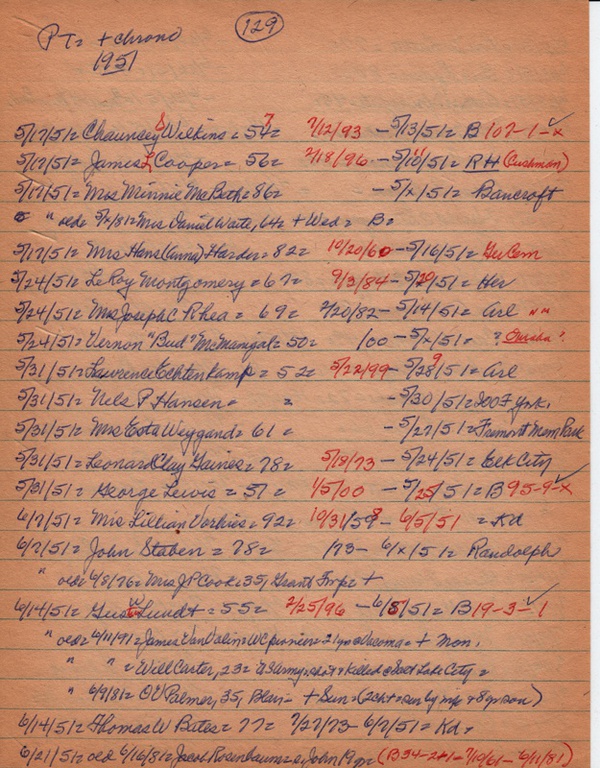 129
PT= + chrono
1951
5/17/51= Chauncey S Wilkins = 57= 7/12/93 - 5/13/51= B 107-1-x
5/17/51= James L Cooper= 56= 2/18/96 - 5/11/51= RH (Cushman)
5/17/51= Mrs Minnie McBeth= 86= - 5/x/51= Bancroft
" oeds 5/2/81= Mrs Daniel Waite, 64= + Wed= B=
5/17/51= Mrs Hans (Anna) Harder= 82= 10/20/60 - 5/16/51= GerCem
5/24/51= LeRoy Montgomery = 67= 9/3/84 - 5/20/51= Her
5/24/51= Mrs Joseph C Rhea = 69= 2/20/82 - 5/14/51= Arl " "
5/24/51= Vernon "Bud" McManigal= 50= /00 - 5/x/51= ? Omaha ?
5/31/51= Lawrence Echtenkamp= 52= 5/22/99 - 5/29/51= Arl
5/31/51= Nels P Hansen= = - 5/30/51=
5/31/51= Mrs Esta Weygand= 61 = - 5/27/51= Fremont Mem Park
5/31/51= Leonard Clay Gaines= 78= 5/19/73 - 5/24/51= Elk City
5/31/51= George Lewis = 51= 1/5/00 - 5/25/51= B 95-9-x
6/7/51= Mrs Lillian Vorhies= 92= 10/31/58 - 6/5/51 = Kd
6/7/51= John Staben = 78= /73 - 6/x/51= Randolph
" oeds 6/8/76= Mrs JP Cook= 35, Grant Twp= +
6/14/51= Gus W Lundt = 55= 2/25/96 - 6/8/51= B 19-3-1
" oeds 6/11/91= James Van Valin= WC pioneer= 21 yr @ Tacoma= + Mon.
" " = Will Carter, 23= US Army, shot & killed @ Salt Lake City =
" 6/9/81= OV Palmer, 35, Blair= + Sun= (2ch + by mfe + 8 yr son)
6/14/51= Thomas W Bates= 77= 7/27/73 - 6/7/51= Kd=
6/21/51= oed 6/16/81= Jacob Rosenbaum= s/John 19 yr= (B 34-2+1= 7/10/61 - 6/11/81)